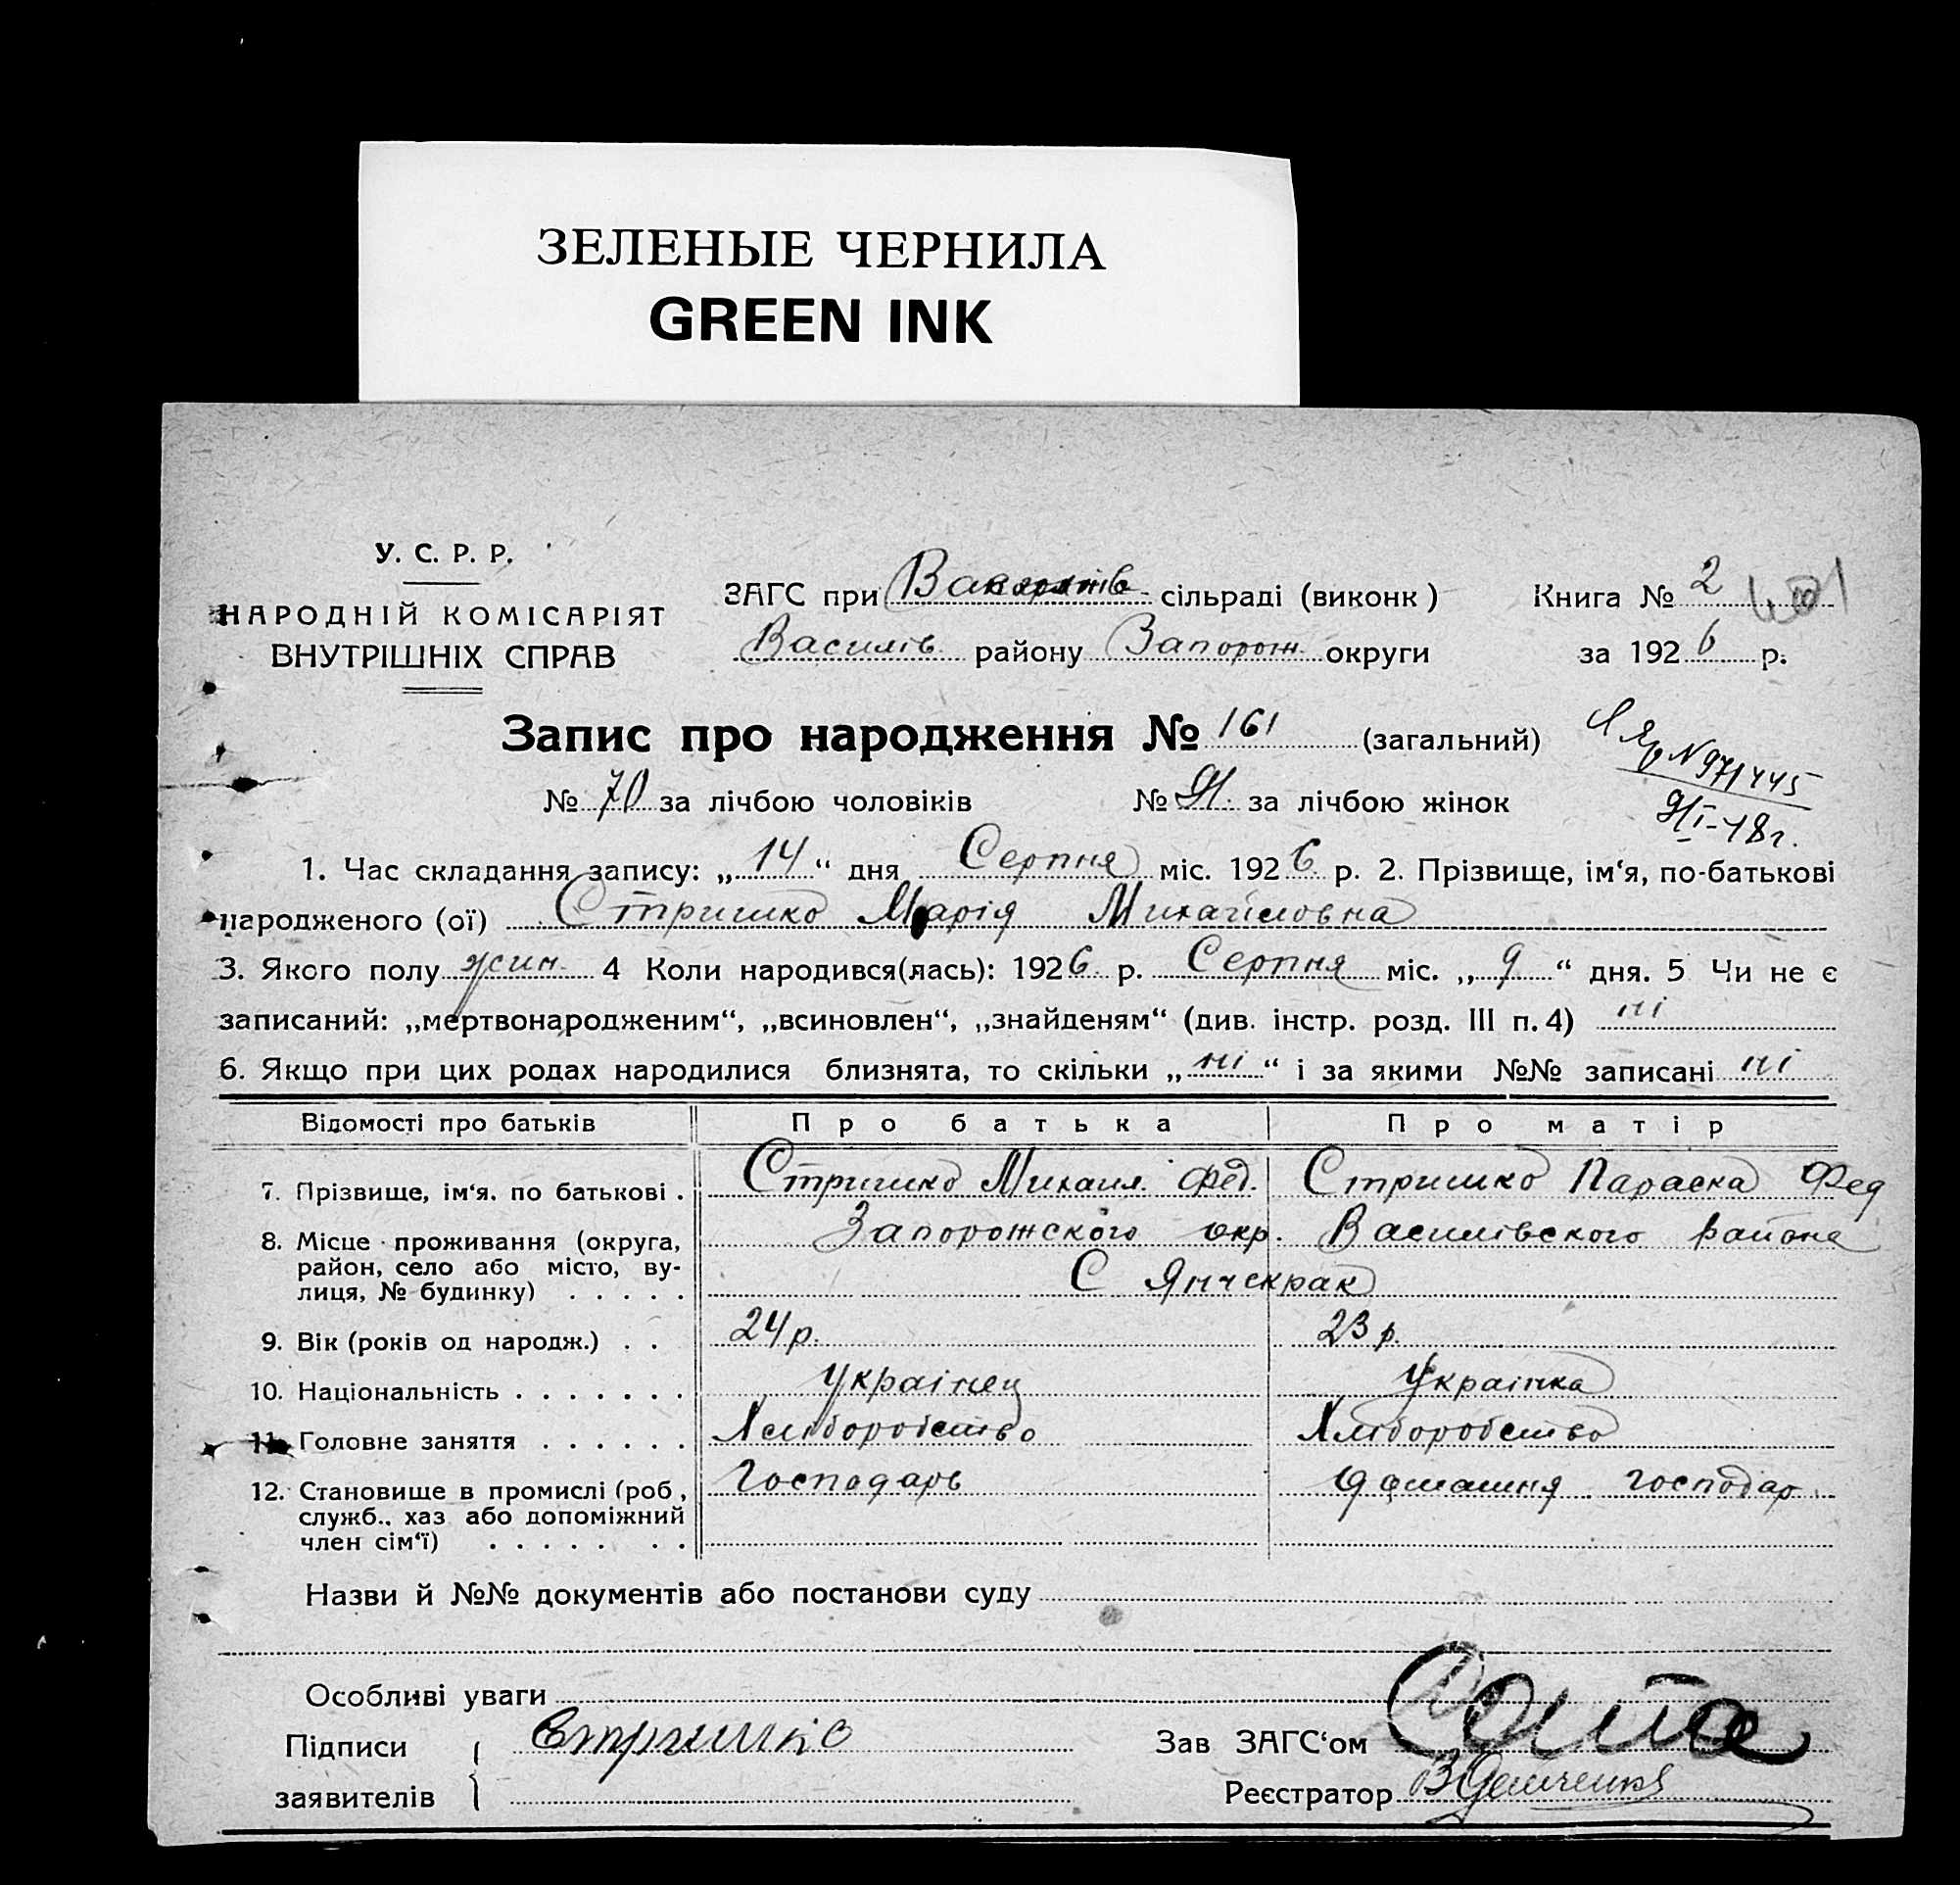 ЗЕЛЕНЫЕ ЧЕРНИЛА
GREEN INK
У. С. Р. Р.
НАРОДНІЙ КОМІСАРІЯТ
ВНУТРІШНІХ СПРАВ
ЗАГС при сільраді (виконк)
Василів району Запорож. округи
Книга № 2
за 1926 р.
Запис про народження № 161 (загальний)
№ 70 за лічбою чоловіків № 91 за лічбою жінок
N 971445
9/I-48г.
1. Час складання запису: „14“ дня Серпня міс. 1926 р. 2. Прізвище, ім‘я, по-батькові
народженого (ої) Стришко Марія Михайловна
3. Якого полу жин. 4 Коли народився(лась): 1926 р. Серпня міс. „9“ дня. 5 Чи не є
записаний: „мертвонародженим“, „всиновлен“, „знайденям“ (див. інстр. розд. III п. 4) ні
6. Якщо при цих родах народилися близнята, то скільки „ні“ і за якими №№ записані ні
Відомості про батьків Про батька Про матір
7. Прізвище, ім‘я. по батькові . Стришко Михаил Фед. Стришко Параска Фед
8. Місце проживання (округа, Запорожского окр. Василівского района
район, село або місто, ву-
лиця, № будинку) . . . . . С Янчекрак
9. Вік (років од народж.) . . 24 р. 23 р.
10. Національність . . . . . . . Украінец Украінка
11. Головне заняття . . . . . . Хліборобство Хліборобство
12. Становище в промислі (роб, Господарь домашня господар.
служб., хаз або допоміжний
член сім‘ї) . . . . . . .
Назви й №№ документів або постанови суду
Особливі уваги
Підписи
заявителів
Стришко
Зав ЗАГС‘ом
Реєстратор